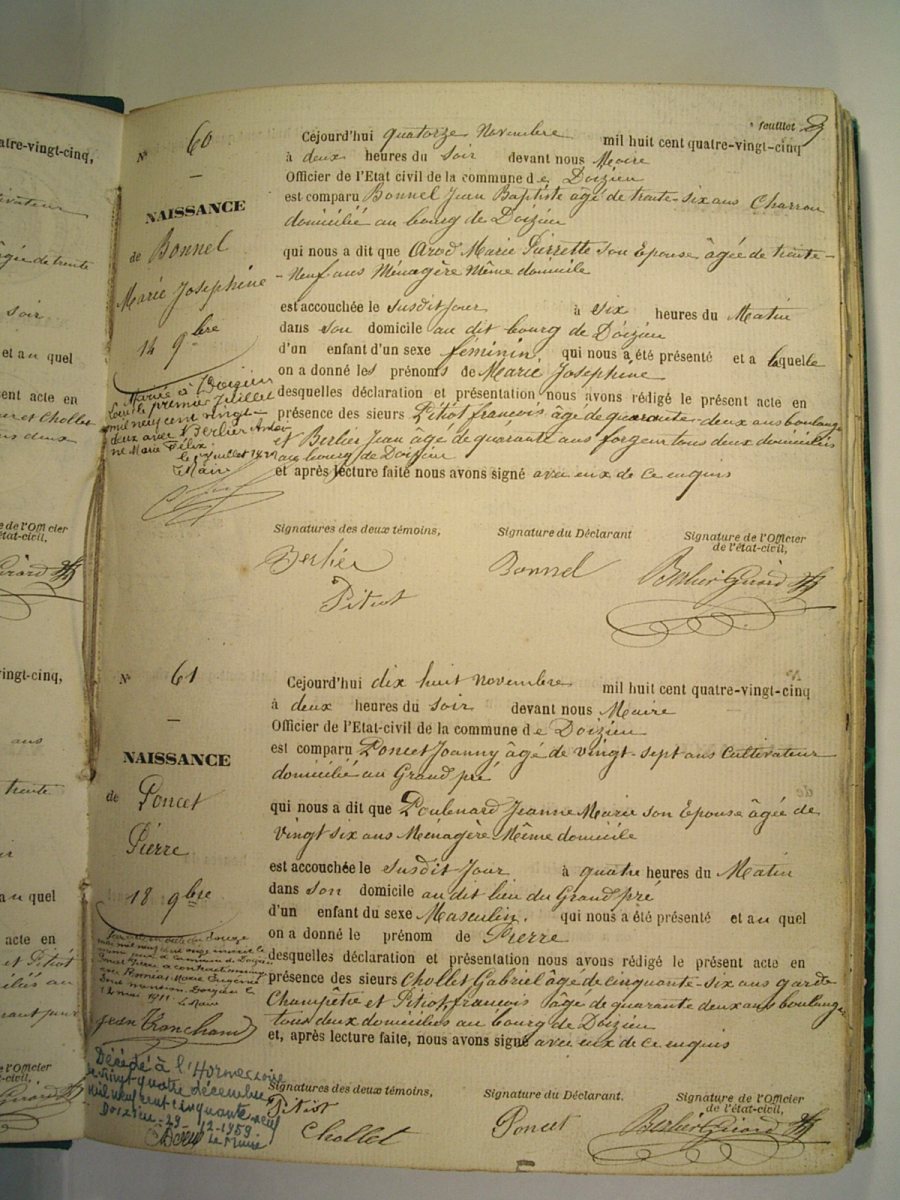 atre-vingt-cinq,
ivateur
âgée de trente
soir
et au quel
sent acte en
et Chollet
ous deux
e de l'Officier
état-civil,
Girard
vingt-cinq,
ans
trente
au quel
acte en
et Pitiot
iliés au
e de l'Officier
-civil,
feuillet 9
N° 60
NAISSANCE
de Bonnel
Marie Josephine
14 9bre
Mariée à Doizieu
le premier Juillet
mil neuf cent vingt-
deux avec Berlier
Marie Félix
Juillet 1922
Maire
Cejourd'hui quatorze Novembre mil huit cent quatre-vingt-cinq
à deux heures du Soir devant nous Maire
Officier de l'Etat civil de la commune de Doizieu
est comparu Bonnel Jean Baptiste âgé de trente-six ans Charron
domicilié au bourg de Doizieu
qui nous a dit que Arod Marie Pierrette son Epouse âgée de trente-
-Neuf ans Ménagère Même domicile
est accouchée le susdit jour à six heures du Matin
dans son domicile au dit bourg de Doizieu
d'un enfant d'un sexe féminin, qui nous a été présenté et a laquelle
on a donné les prénoms de Marie Josephine
desquelles déclaration et présentation nous avons rédigé le présent acte en
présence des sieurs Pitiot françois âgé de quarante-deux ans boulanger
et Berlier Jean âgé de quarante ans forgeur tous deux domiciliés
au bourg de Doizieu
et après lecture faite nous avons signé avec eux de ce enquis
Signatures des deux témoins, Signature du Déclarant Signature de l'Officier
de l'état-civil,
Berlier Bonnel Berlier Girard
Pitiot
N° 61
NAISSANCE
de Poncet
Pierre
18 9bre
12 mai 1911. le Maire
Jean Tranchand
Décédé à l'Hormezoire
le vingt quatre décembre
mil neuf cent cinquante neuf
Doizieu 29-12-1959
Le Maire
Cejourd'hui dix huit novembre mil huit cent quatre-vingt-cinq
à deux heures du soir devant nous Maire
Officier de l'Etat-civil de la commune de Doizieu
est comparu Poncet Joanny âgé de vingt-sept ans Cultivateur
domicilié au Grand pré
qui nous a dit que Poulenard Jeanne Marie son Epouse âgée de
vingt six ans Ménagère Même domicile
est accouchée le susdit Jour à quatre heures du Matin
dans son domicile au dit lieu du Grand pré
d'un enfant du sexe Masculin, qui nous a été présenté et au quel
on a donné le prénom de Pierre
desquelles déclaration et présentation nous avons rédigé le présent acte en
présence des sieurs Chollet Gabriel âgé de cinquante-six ans garde
Champêtre et Pitiot françois âgé de quarante deux ans boulanger
tous deux domiciliés au bourg de Doizieu
et, après lecture faite, nous avons signé avec eux de ce enquis
Signatures des deux témoins, Signature du Déclarant. Signature de l'Officier
de l'état-civil,
Pitiot Poncet Berlier Girard
Chollet